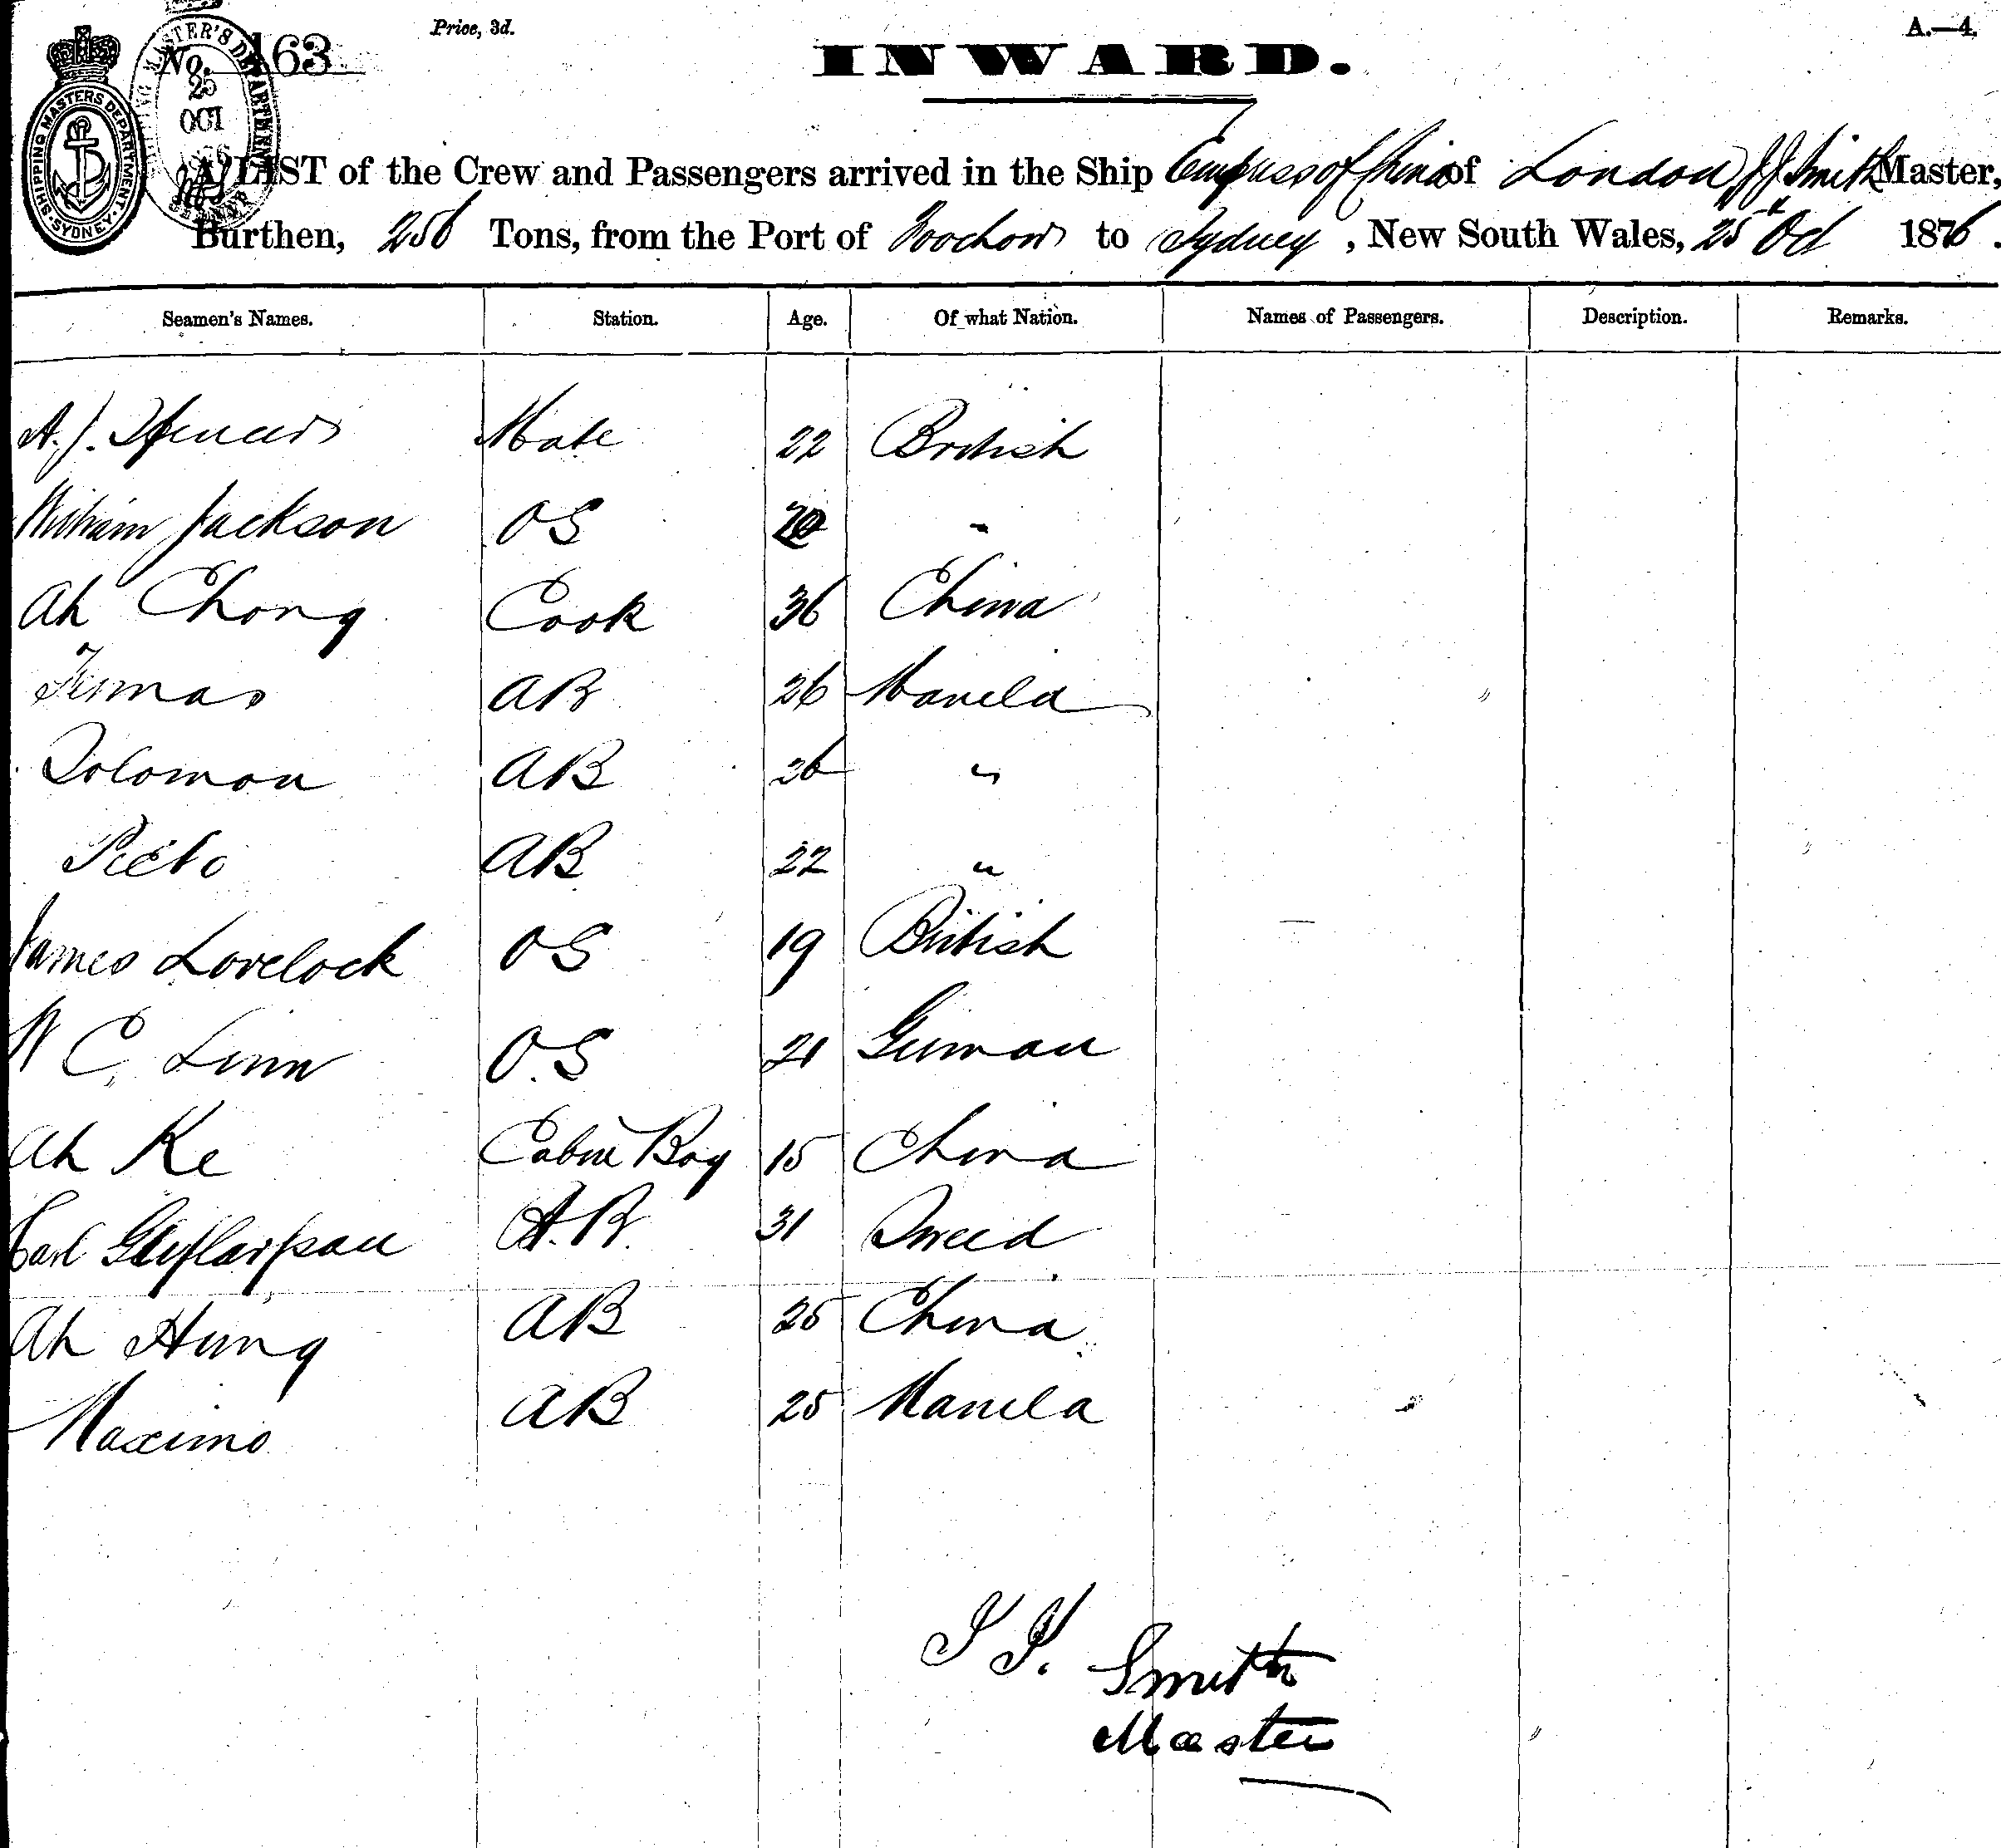 Price, 3d.
A.—4.
No. 163
INWARD.
SHIPPING MASTERS DEPARTMENT · SYDNEY ·
25
OCT
A LIST of the Crew and Passengers arrived in the Ship Empress of China of London J J Smith Master,
Burthen, 256 Tons, from the Port of Foochow to Sydney, New South Wales, 25th Oct 1876.
Seamen's Names. Station. Age. Of what Nation. Names of Passengers. Description. Remarks.
A. J. Spencer Mate 22 British
William Jackson OS 20 "
Ah Chong Cook 36 China
AB 26 Manila
Solomon AB 26 "
AB 22 "
James Lovelock OS 19 British
W C. Linn O.S 21 German
Ah Ke Cabin Boy 15 China
Carl A.B. 31 Sweed
Ah Hung AB 25 China
Maximo AB 25 Manila
J J. Smith
Master